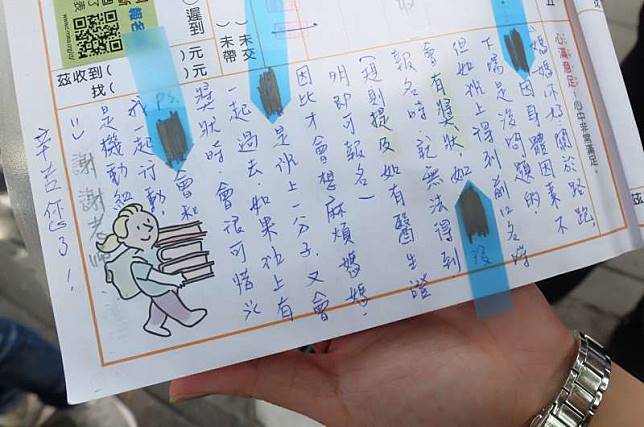 心滿意足：心中非常滿足。
媽媽你好,關於路跑,
因身體因素不
下場是沒問題的,
但如班上得到前12名時
會有獎狀,如 沒
報名時就無法得到
(規則提及如有醫生證
明即可報名)
因此才會想麻煩媽媽,
是班上一分子,又會
一起過去,如果班上有
獎狀時,會很可惜
P.S. 會和
我一起行動,
是機動組
謝謝
辛苦您了!
報名
(
)
遲到
(
)
未帶
(
)
未交
茲收到(
)元
找(
)元